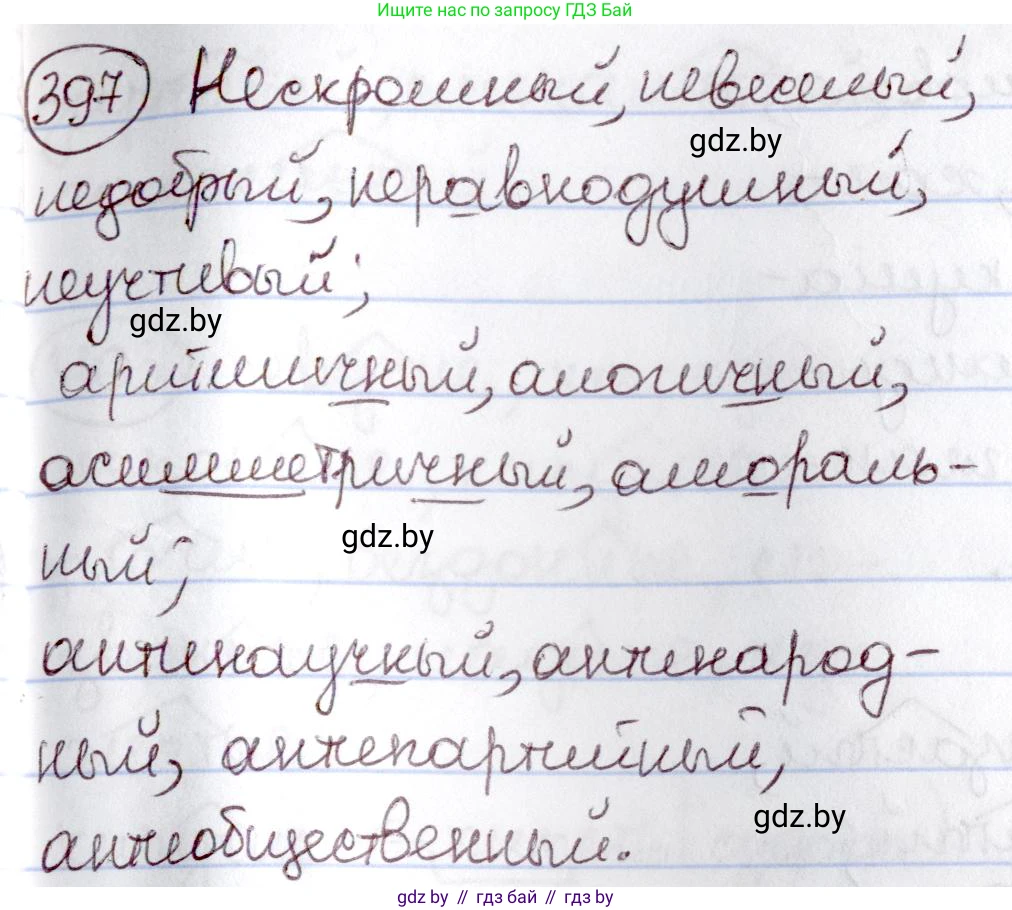 Ищите нас по запросу ГДЗ Бай
397 Нескромный, невеселый,
gdz.by
недобрый, неравнодушный,
неучтивый;
gdz.by
аритмичный, алогичный,
асимметричный, амораль-
gdz.by
ный;
антинаучный, антинарод-
ный, антипартийный,
gdz.by
антиобщественный.
gdz.by // гдз бай // гдз by